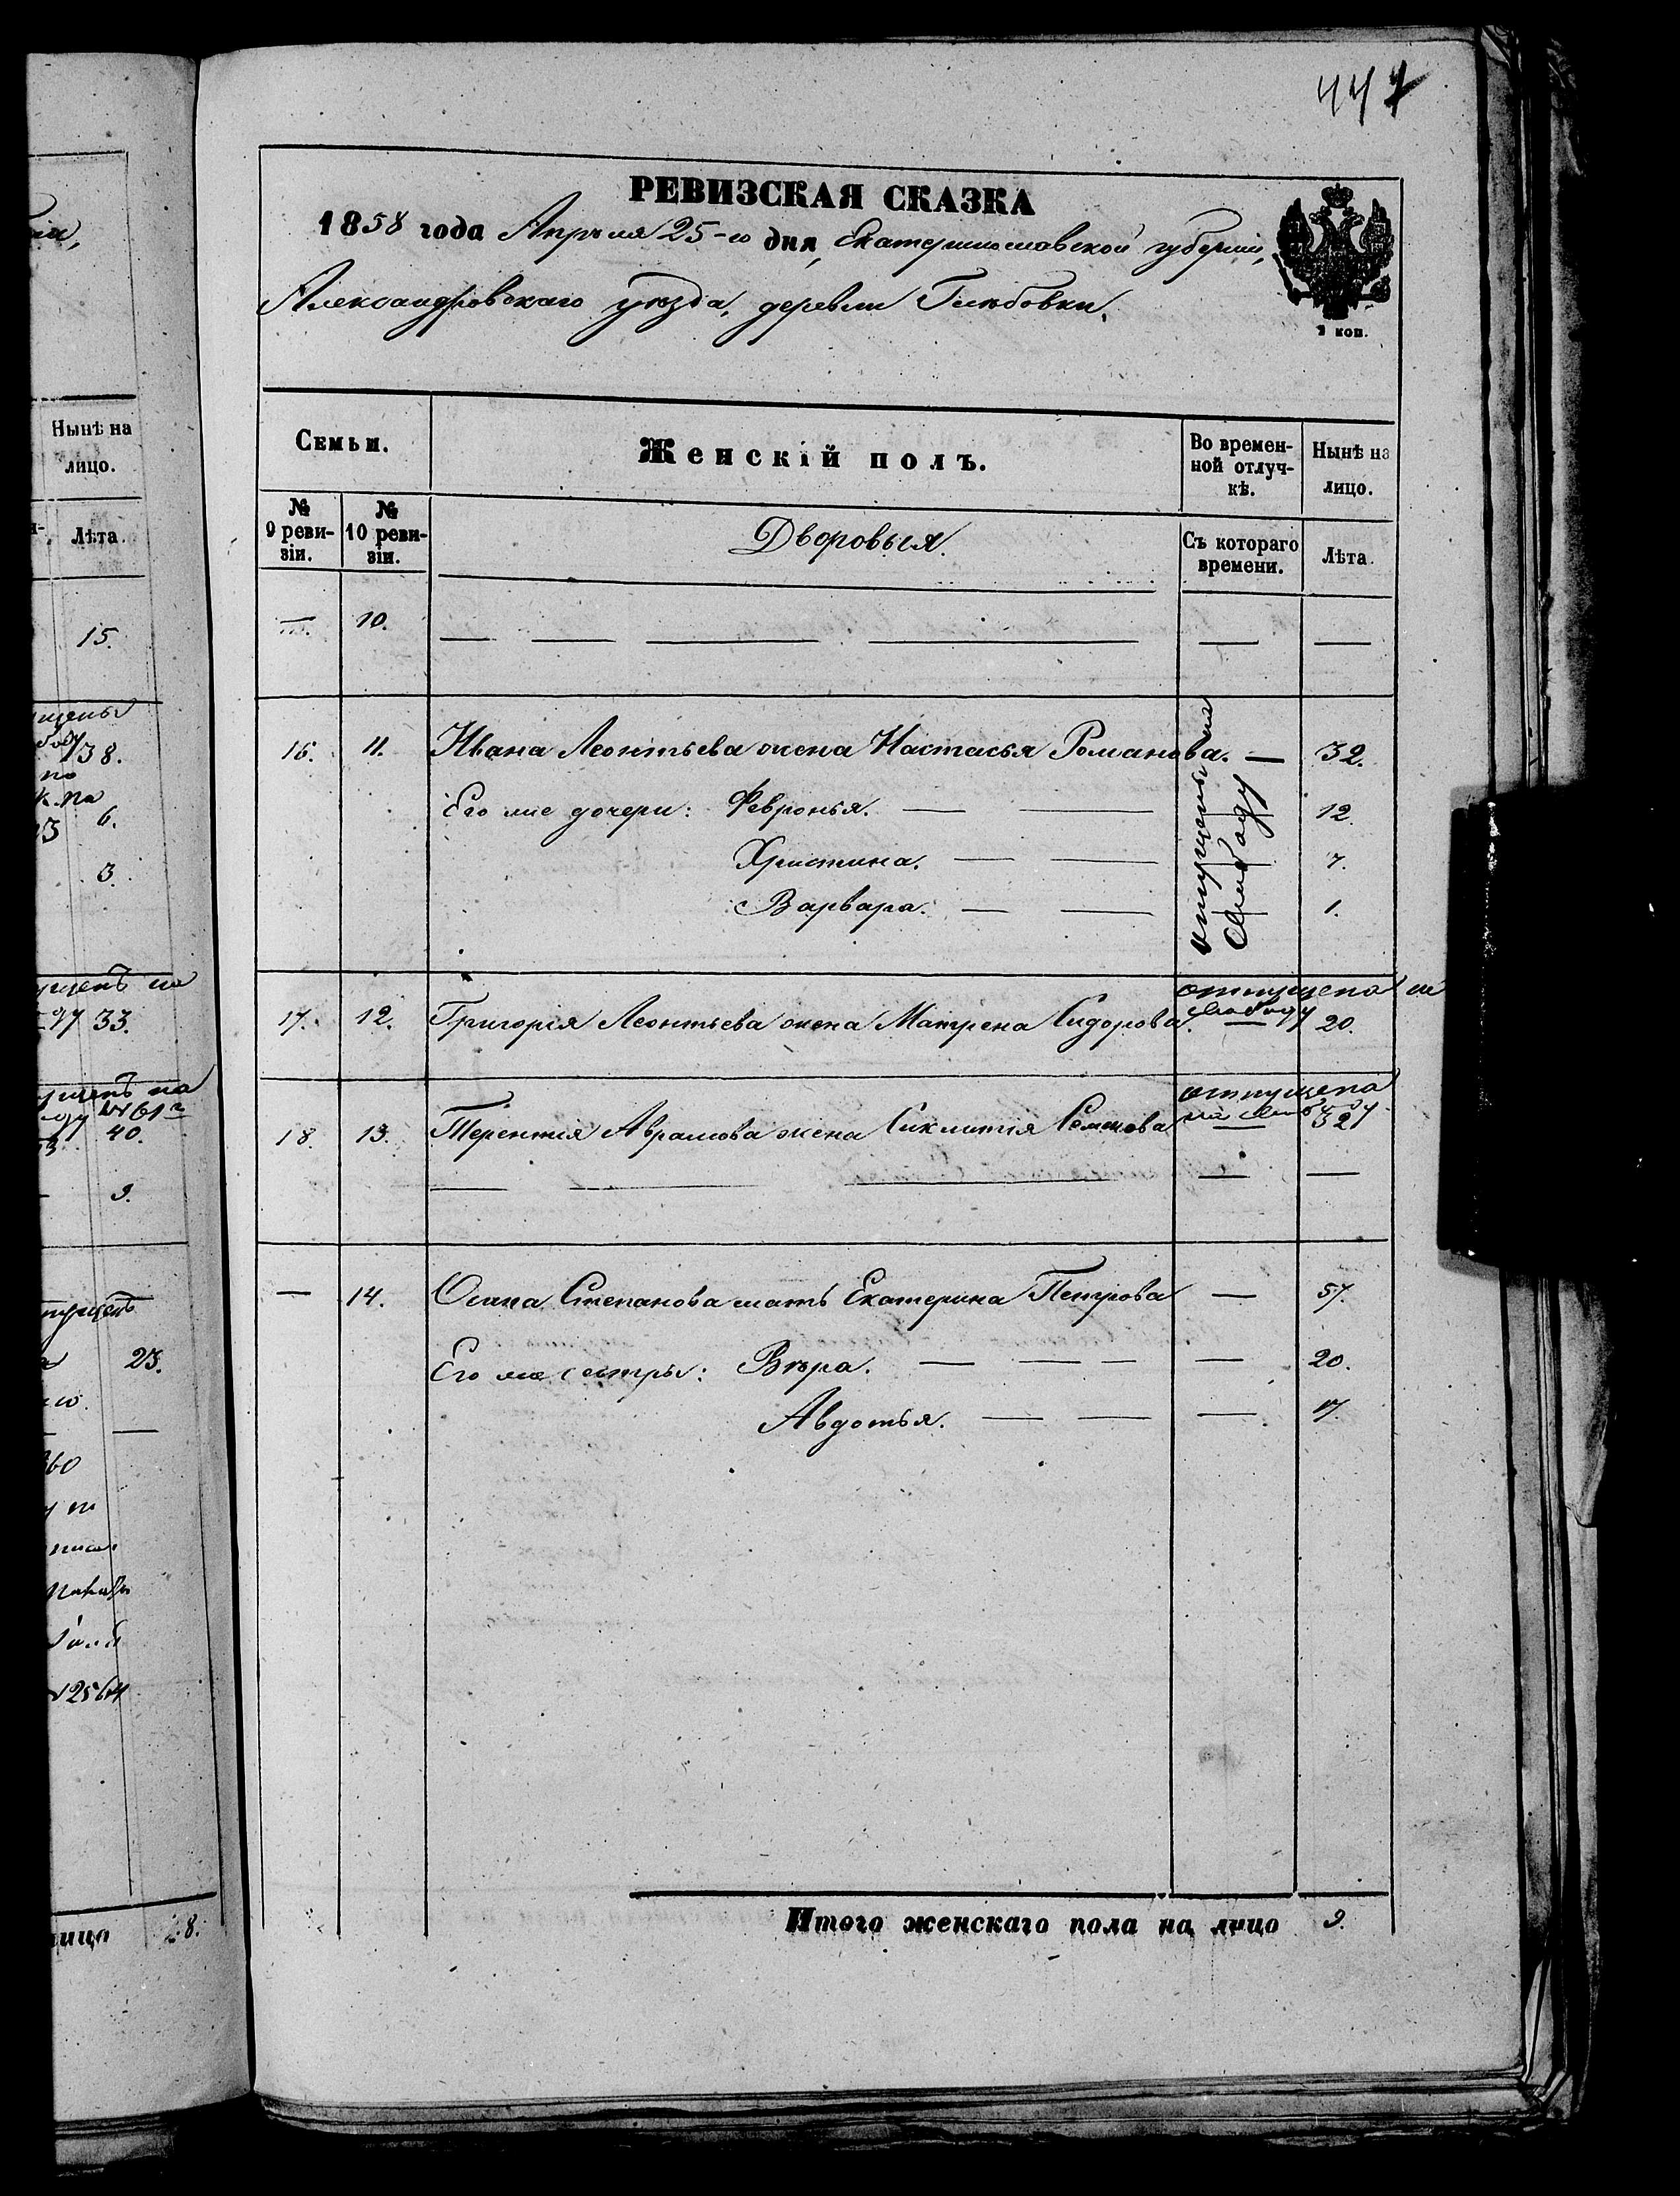 447
РЕВИЗСКАЯ СКАЗКА
1858 года Апрѣля 25-го дня, Екатеринославской губерніи,
Александровскаго уѣзда, деревни Глѣбовки.
2 коп.
Семьи. Женскій полъ. Во времен-ной отлуч-кѣ. Нынѣ на лицо.
№ 9 реви-зіи. № 10 реви-зіи. Дворовыя. Съ котораго времени. Лѣта.
— 10. — — — — — —
16. 11. Ивана Леонтьева жена Настасья Романова. — 32.
Его же дочери: Февронья. — — 12.
Христина. — — 7.
Варвара. — — 1.
отпущены на
свободу
отпущена на
17. 12. Григорія Леонтьева жена Матрена Сидорова. свободу 20.
отпущена
18. 13. Терентія Аврамова жена Сиклитія Семенова на свободу 32
— — — — —
— 14. Осипа Степанова мать Екатерина Петрова — 57.
Его же сестры: Вѣра. — — — — 20.
Авдотья. — — — 17.
Итого женскаго пола на лицо 9.
Нынѣ на
лицо.
Лѣта.
15.
38.
6.
3.
33.
40.
9.
23.
2564
лицо 8.